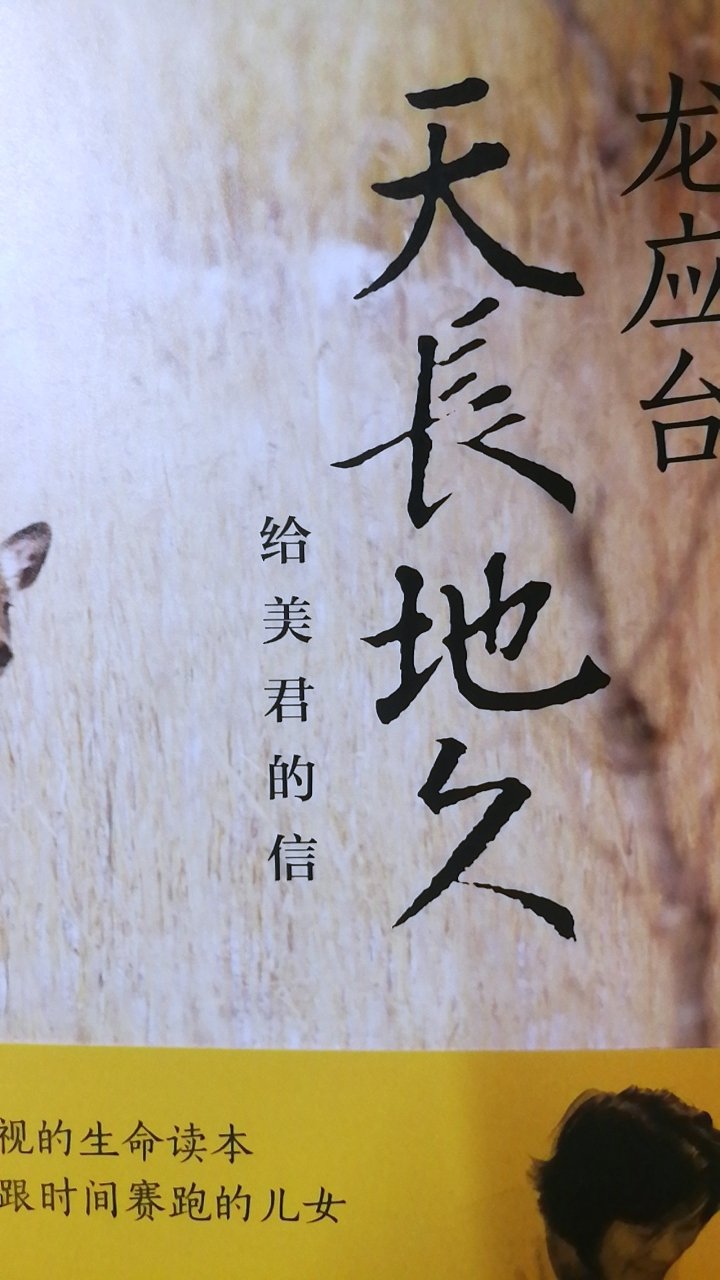 龙应台
天長地久
给美君的信
视的生命读本
跟时间赛跑的儿女